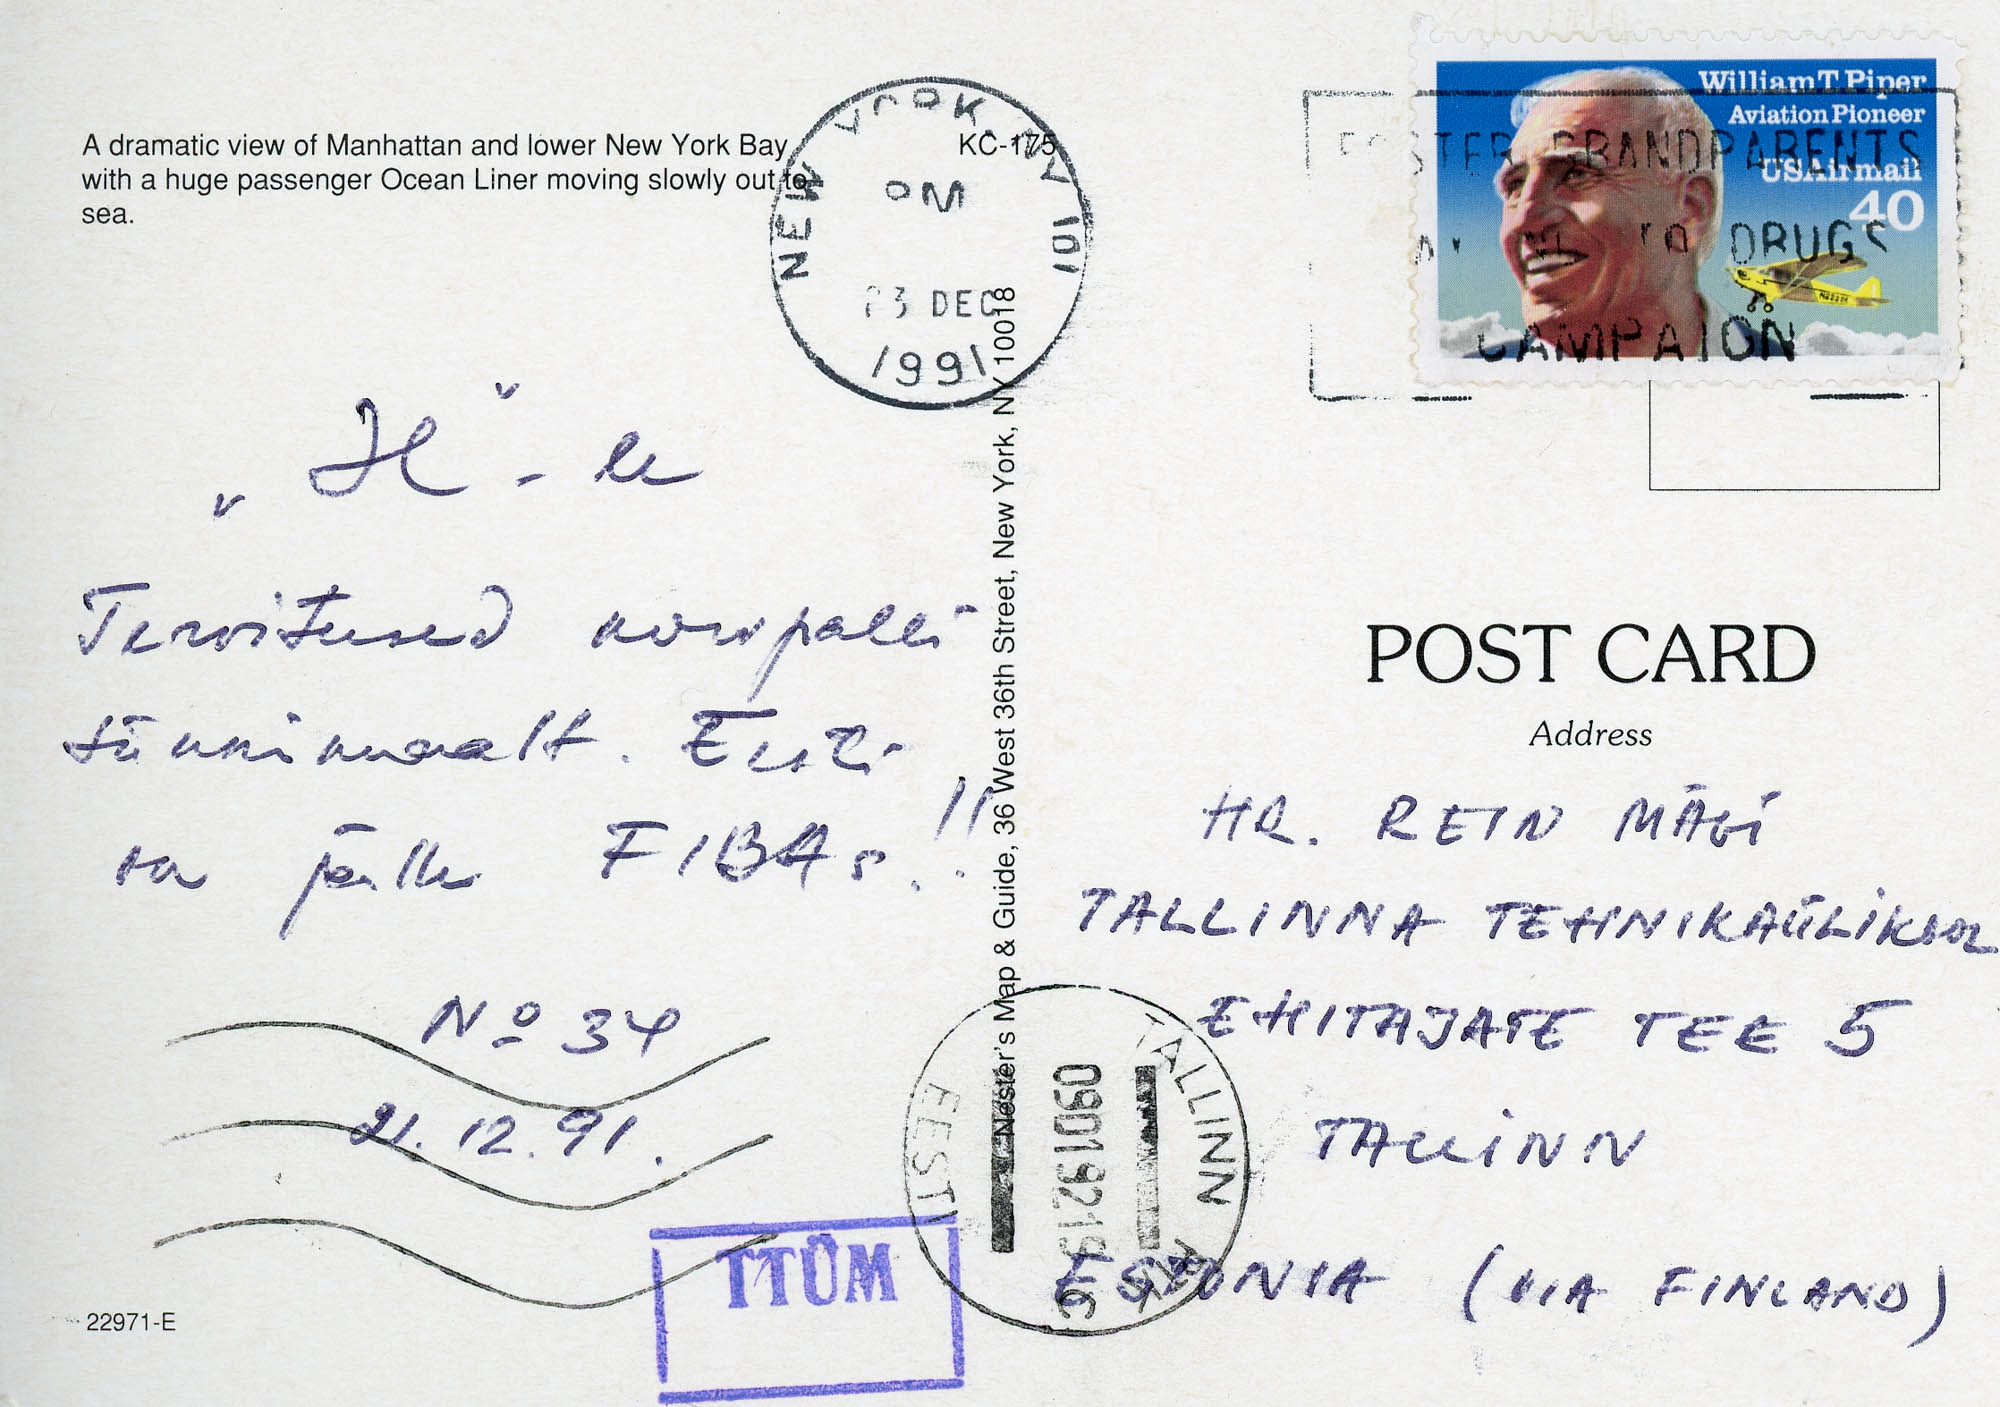 A dramatic view of Manhattan and lower New York Bay
with a huge passenger Ocean Liner moving slowly out to
sea.
KC-175
NEW YORK, NY 101
PM
23 DEC
1991
William T. Piper
Aviation Pioneer
USAirmail
40
FOSTER GRANDPARENTS
TO DRUGS
CAMPAION
„H"-le
Tervitused korvpalli
sünnimaalt. Eesti
on jälle FIBAs!!
No 34
21.12.91.
Nester's Map & Guide, 36 West 36th Street, New York, NY 10018
POST CARD
Address
HR. REIN MÄGI
TALLINNA TEHNIKAÜLIKOOL
EHITAJATE TEE 5
TALLINN
ESTONIA (VIA FINLAND)
TALLINN
09019219
EESTI
TTÜM
22971-E